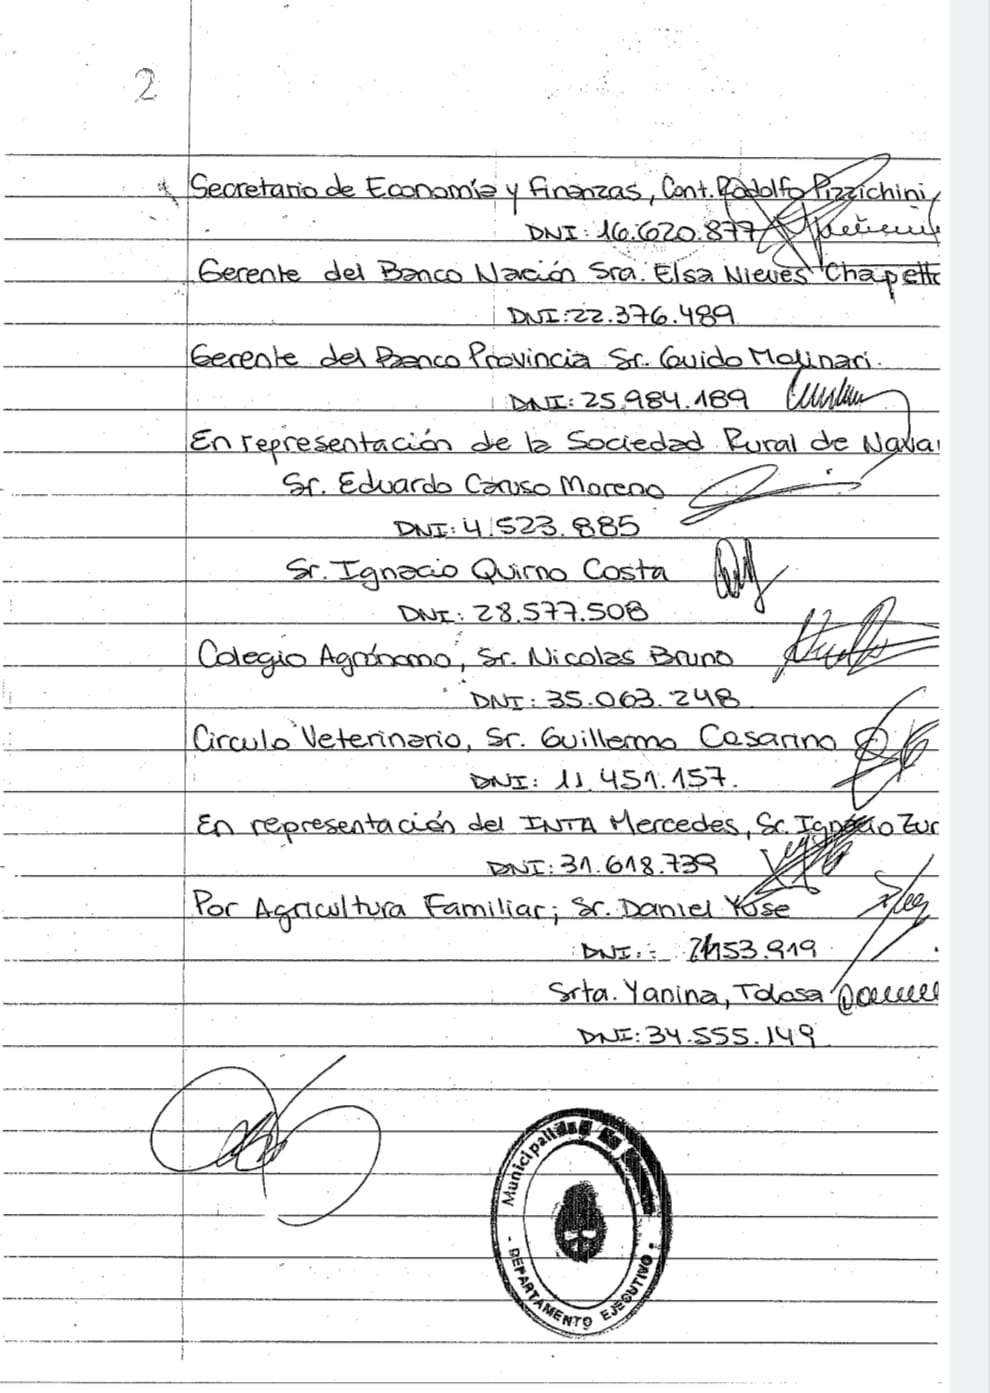 2
Secretario de Economía y Finanzas, Cont. Rodolfo Pizzichini,
DNI: 16.620.877
Gerente del Banco Nación Sra. Elsa Nieves Chapett
DNI: 22.376.489
Gerente del Banco Provincia Sr. Guido Molinari.
DNI: 25.984.189
En representación de la Sociedad Rural de Navar
Sr. Eduardo Caruso Moreno
DNI: 4.523.885
Sr. Ignacio Quirno Costa
DNI: 28.577.508
Colegio Agrónomo, Sr. Nicolas Bruno
DNI: 35.063.248
Circulo Veterinario, Sr. Guillermo Casarino
DNI: 11.451.157.
En representación del INTA Mercedes, Sr. Ignacio Zur
DNI: 31.618.739
Por Agricultura Familiar; Sr. Daniel Yose
DNI:
Srta. Yanina, Tolosa
DNI: 34.555.149
Municipalidad de
- DEPARTAMENTO EJECUTIVO -